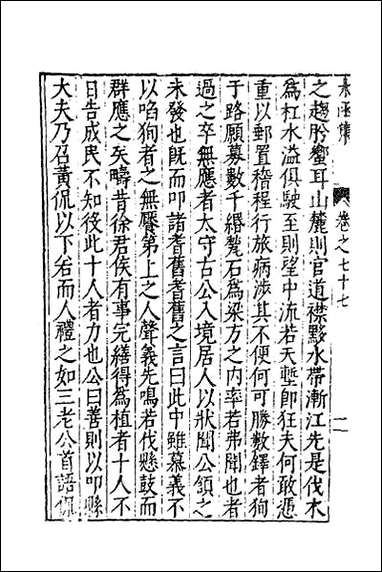 太函集 卷之七十七 二
之趨肹蠁耳山麓則官道襟黟水帶漸江先是伐木
爲杠水溢俱駛至則望中流若天塹卽狂夫何敢慿
重以郵置稽程行旅病涉其不便何可勝數鐸者狥
于路願募數千緡甃石爲梁方之内率若弗聞也者
過之卒無應者太守古公入境居人以狀聞公頷之
未發也旣而叩諸耆舊耆舊之言曰此中雖慕義不
以啗狥者之無饜第上之人聲義先鳴若伐縣鼓而
群應之矣疇昔徐君侯有事完繕得爲植者十人不
日告成民不知役此十人者力也公曰善則以叩縣
大夫乃召黃侃以下若而人禮之如三老公首語侃